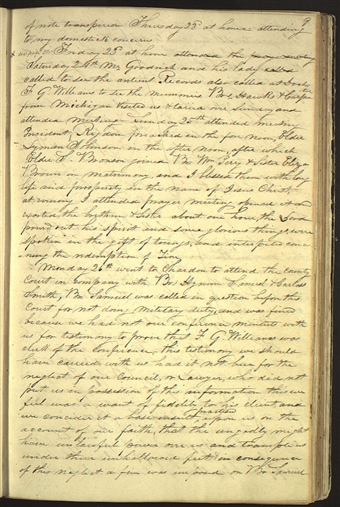 9
of note transpired Thursday 22d at home attending
to my domestick concerns
Friday 23d at home attended the
Saturday 24th Mr Goodrich and his lady called
called to see the antient Records also called at Doct
F G Williams to see the mummies Brs Hawks & Carpenter
from Michigan visited us & taried over Sunday and
attended meeting— Sunday 25th attended meeting
President Rigdon preached in the fore noon, Elder
Lyman Johnson in the after noon, after which
Elder S. Brunson joined Br Wm Perry & Sister Eliza
Brown in matrimony, and I blessed them with long
life and prosperity in the name of Jesus Christ,
at evening I attended prayer meeting opened it and
exorted, the brethren & sisters about one hour, the Lord
pourd out his spirit and some glorious things, were
spoken in the gift of toungs, and interpeted concer
ning the redemption of Zion
Monday 26th went to Chardon to attend the county
Court in company with Brs Hyrum Samuel & Carloss
Smith, Br Samuel was called in question before this
Court for not doing military duty, and was fined
because we had not our conference minutes with
us for testimony to prove that F G Williams was
clerk of the conference, this testimony we should
have carried with us had it not been for the
neglect of our Council, or Lawyer, who did not
put us in possession of this information this we
feel was a want of fidelity to his client and
we consider it a base insult practised upon us on the
account of our faith, that the ungodly might
have unlawful power over us and trample us
under their unhallowed feet in consequence
of this neglect a fine was imposed on Br Samuel